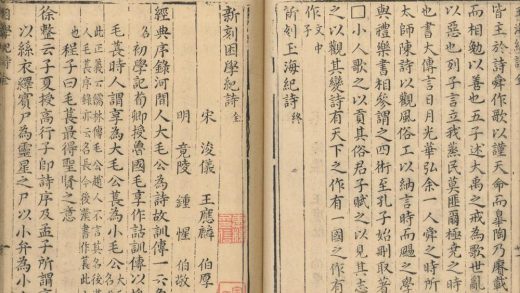 玉海紀詩
皆主於詩舜作歌以謹天命而皐陶乃賡載
而相勉以善也五子述大禹之戒為歌世亂
以惡也列子言立我蒸民莫匪爾極堯之時
也書大傳言日月光華弘余一人舜之時所
與禮樂書相參謂之四術至孔子始刪取著
太師陳詩以觀風俗工以納言時而颺之學
□小人歌之以貢其俗君子賦之以見其志
之以觀其變詩有天下之作有一國之作有
作子文中
所刻玉海紀詩終
新刻困學紀詩全
宋浚儀王應麟伯厚
明竟陵鍾惺伯敬
經典序錄河間人大毛公為詩故訓傳一云魯人
名初學記荀卿授魯國毛亨作詁訓傳以
毛萇時人謂亨為大毛公萇為小毛公
程子曰毛萇最得聖賢之意
徐整云子夏授高行子即詩序及孟子所謂
以絲衣繹賓尸為靈星之尸以小弁為小